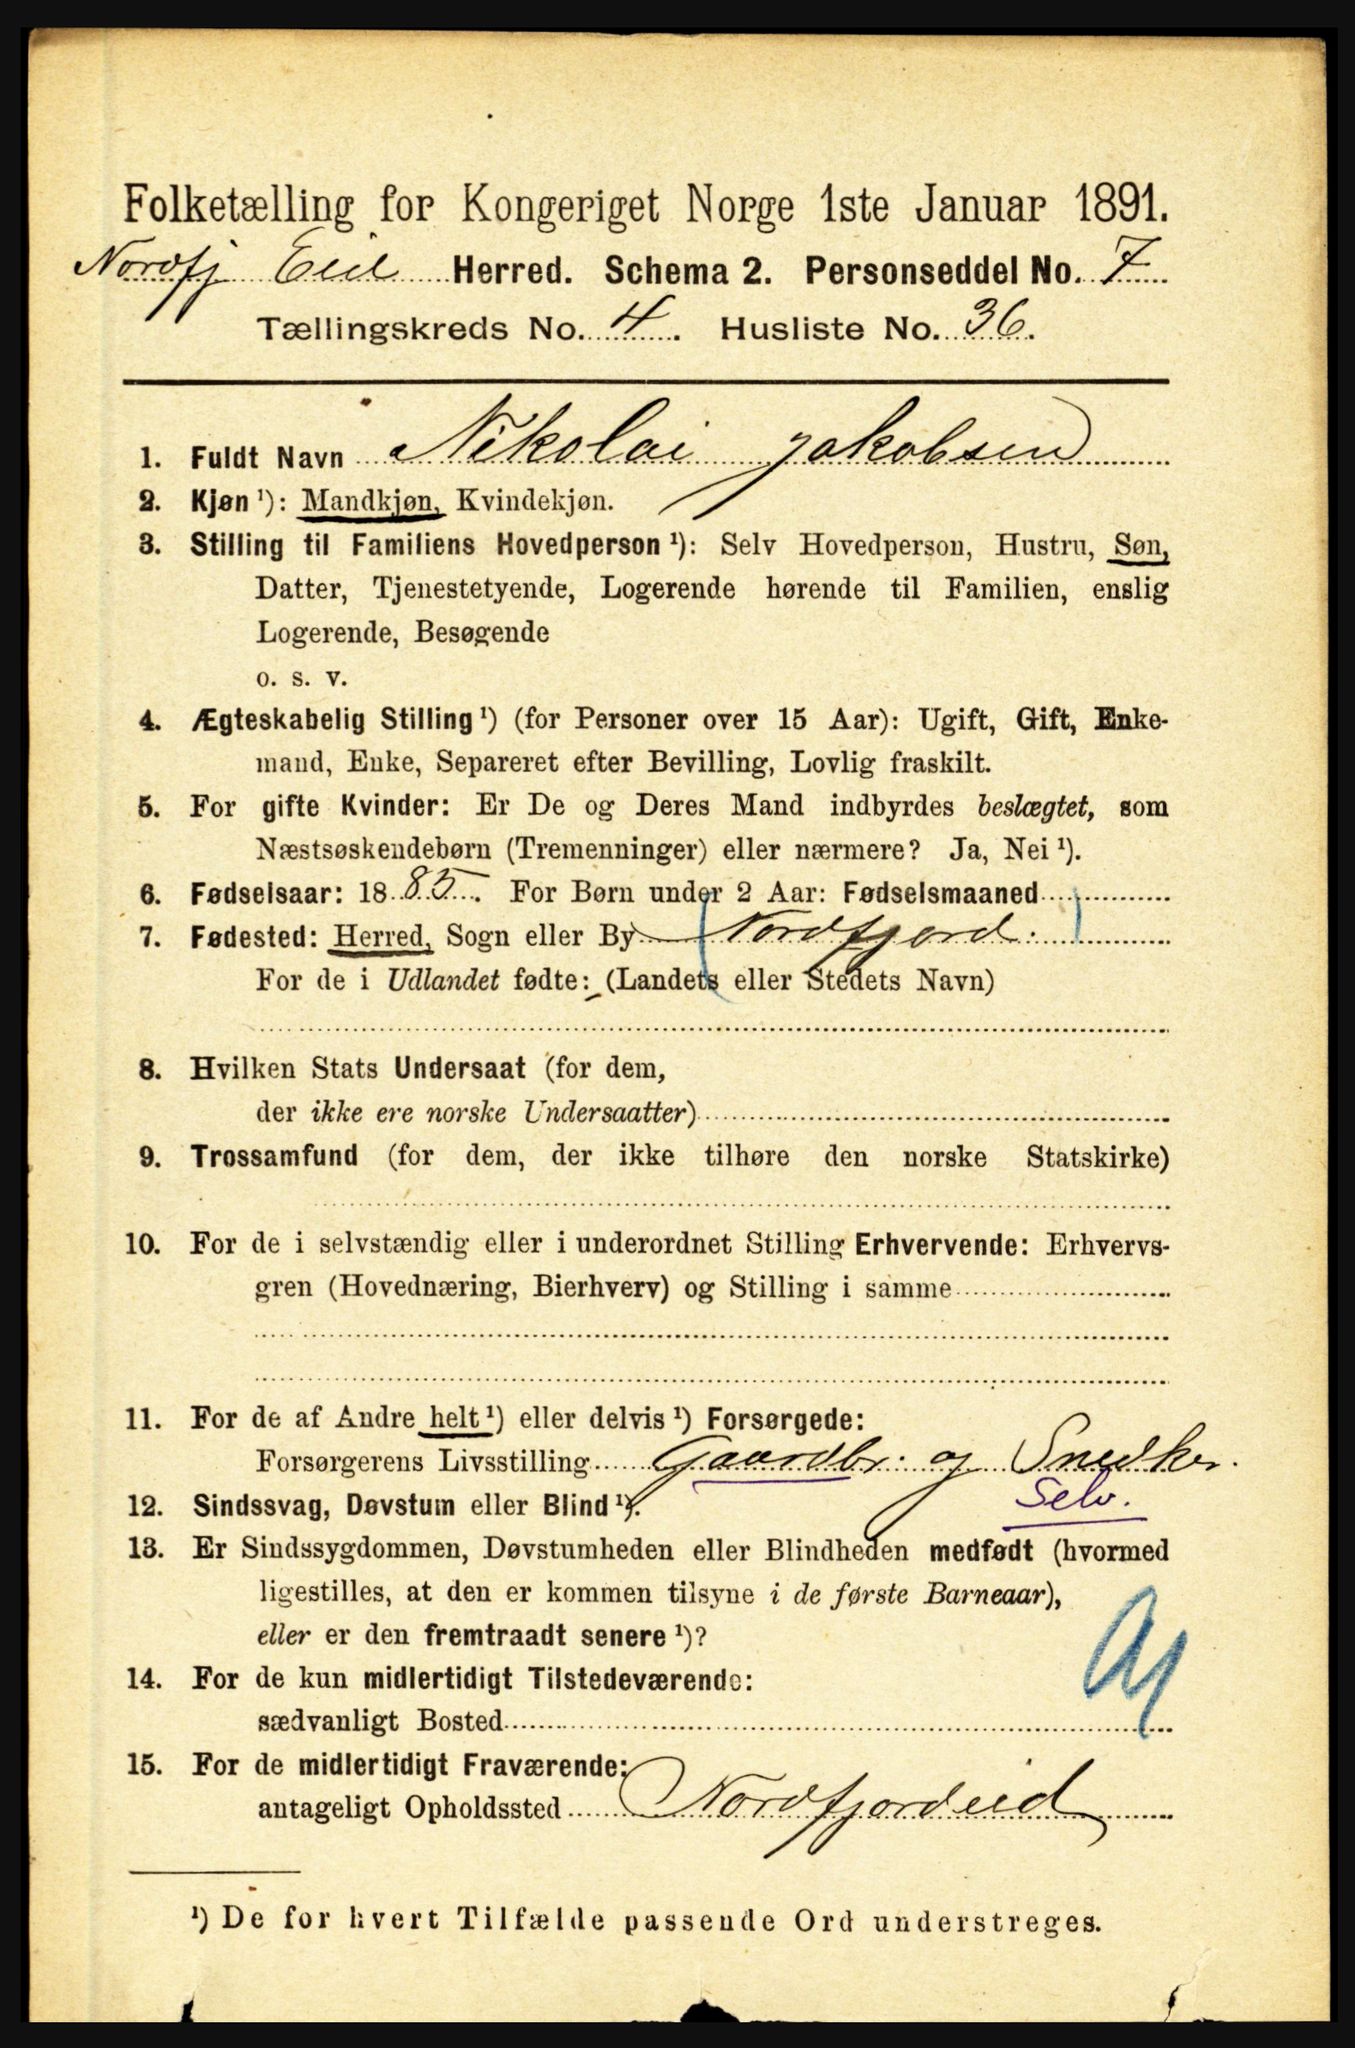 Folketælling for Kongeriget Norge 1ste Januar 1891.
Nordfj Eid Herred. Schema 2. Personseddel No. 7
Tællingskreds No. 4. Husliste No. 36.
1. Fuldt Navn Nikolai Jakobsen
2. Kjøn ¹): Mandkjøn, Kvindekjøn.
3. Stilling til Familiens Hovedperson ¹): Selv Hovedperson, Hustru, Søn,
Datter, Tjenestetyende, Logerende hørende til Familien, enslig
Logerende, Besøgende
o. s. v.
4. Ægteskabelig Stilling ¹) (for Personer over 15 Aar): Ugift, Gift, Enke-
mand, Enke, Separeret efter Bevilling, Lovlig fraskilt.
5. For gifte Kvinder: Er De og Deres Mand indbyrdes beslægtet, som
Næstsøskendebørn (Tremenninger) eller nærmere? Ja, Nei ¹).
6. Fødselsaar: 1885. For Børn under 2 Aar: Fødselsmaaned
7. Fødested: Herred, Sogn eller By (Nordfjord.)
For de i Udlandet fødte: (Landets eller Stedets Navn)
8. Hvilken Stats Undersaat (for dem,
der ikke ere norske Undersaatter)
9. Trossamfund (for dem, der ikke tilhøre den norske Statskirke)
10. For de i selvstændig eller i underordnet Stilling Erhvervende: Erhvervs-
gren (Hovednæring, Bierhverv) og Stilling i samme
11. For de af Andre helt ¹) eller delvis ¹) Forsørgede:
Forsørgerens Livsstilling Gaardbr. og Snedker.
Selv.
12. Sindssvag, Døvstum eller Blind ¹).
13. Er Sindssygdommen, Døvstumheden eller Blindheden medfødt (hvormed
ligestilles, at den er kommen tilsyne i de første Barneaar),
eller er den fremtraadt senere ¹)?
14. For de kun midlertidigt Tilstedeværende:
sædvanligt Bosted
15. For de midlertidigt Fraværende:
antageligt Opholdssted Nordfjordeid
¹) De for hvert Tilfælde passende Ord understreges.